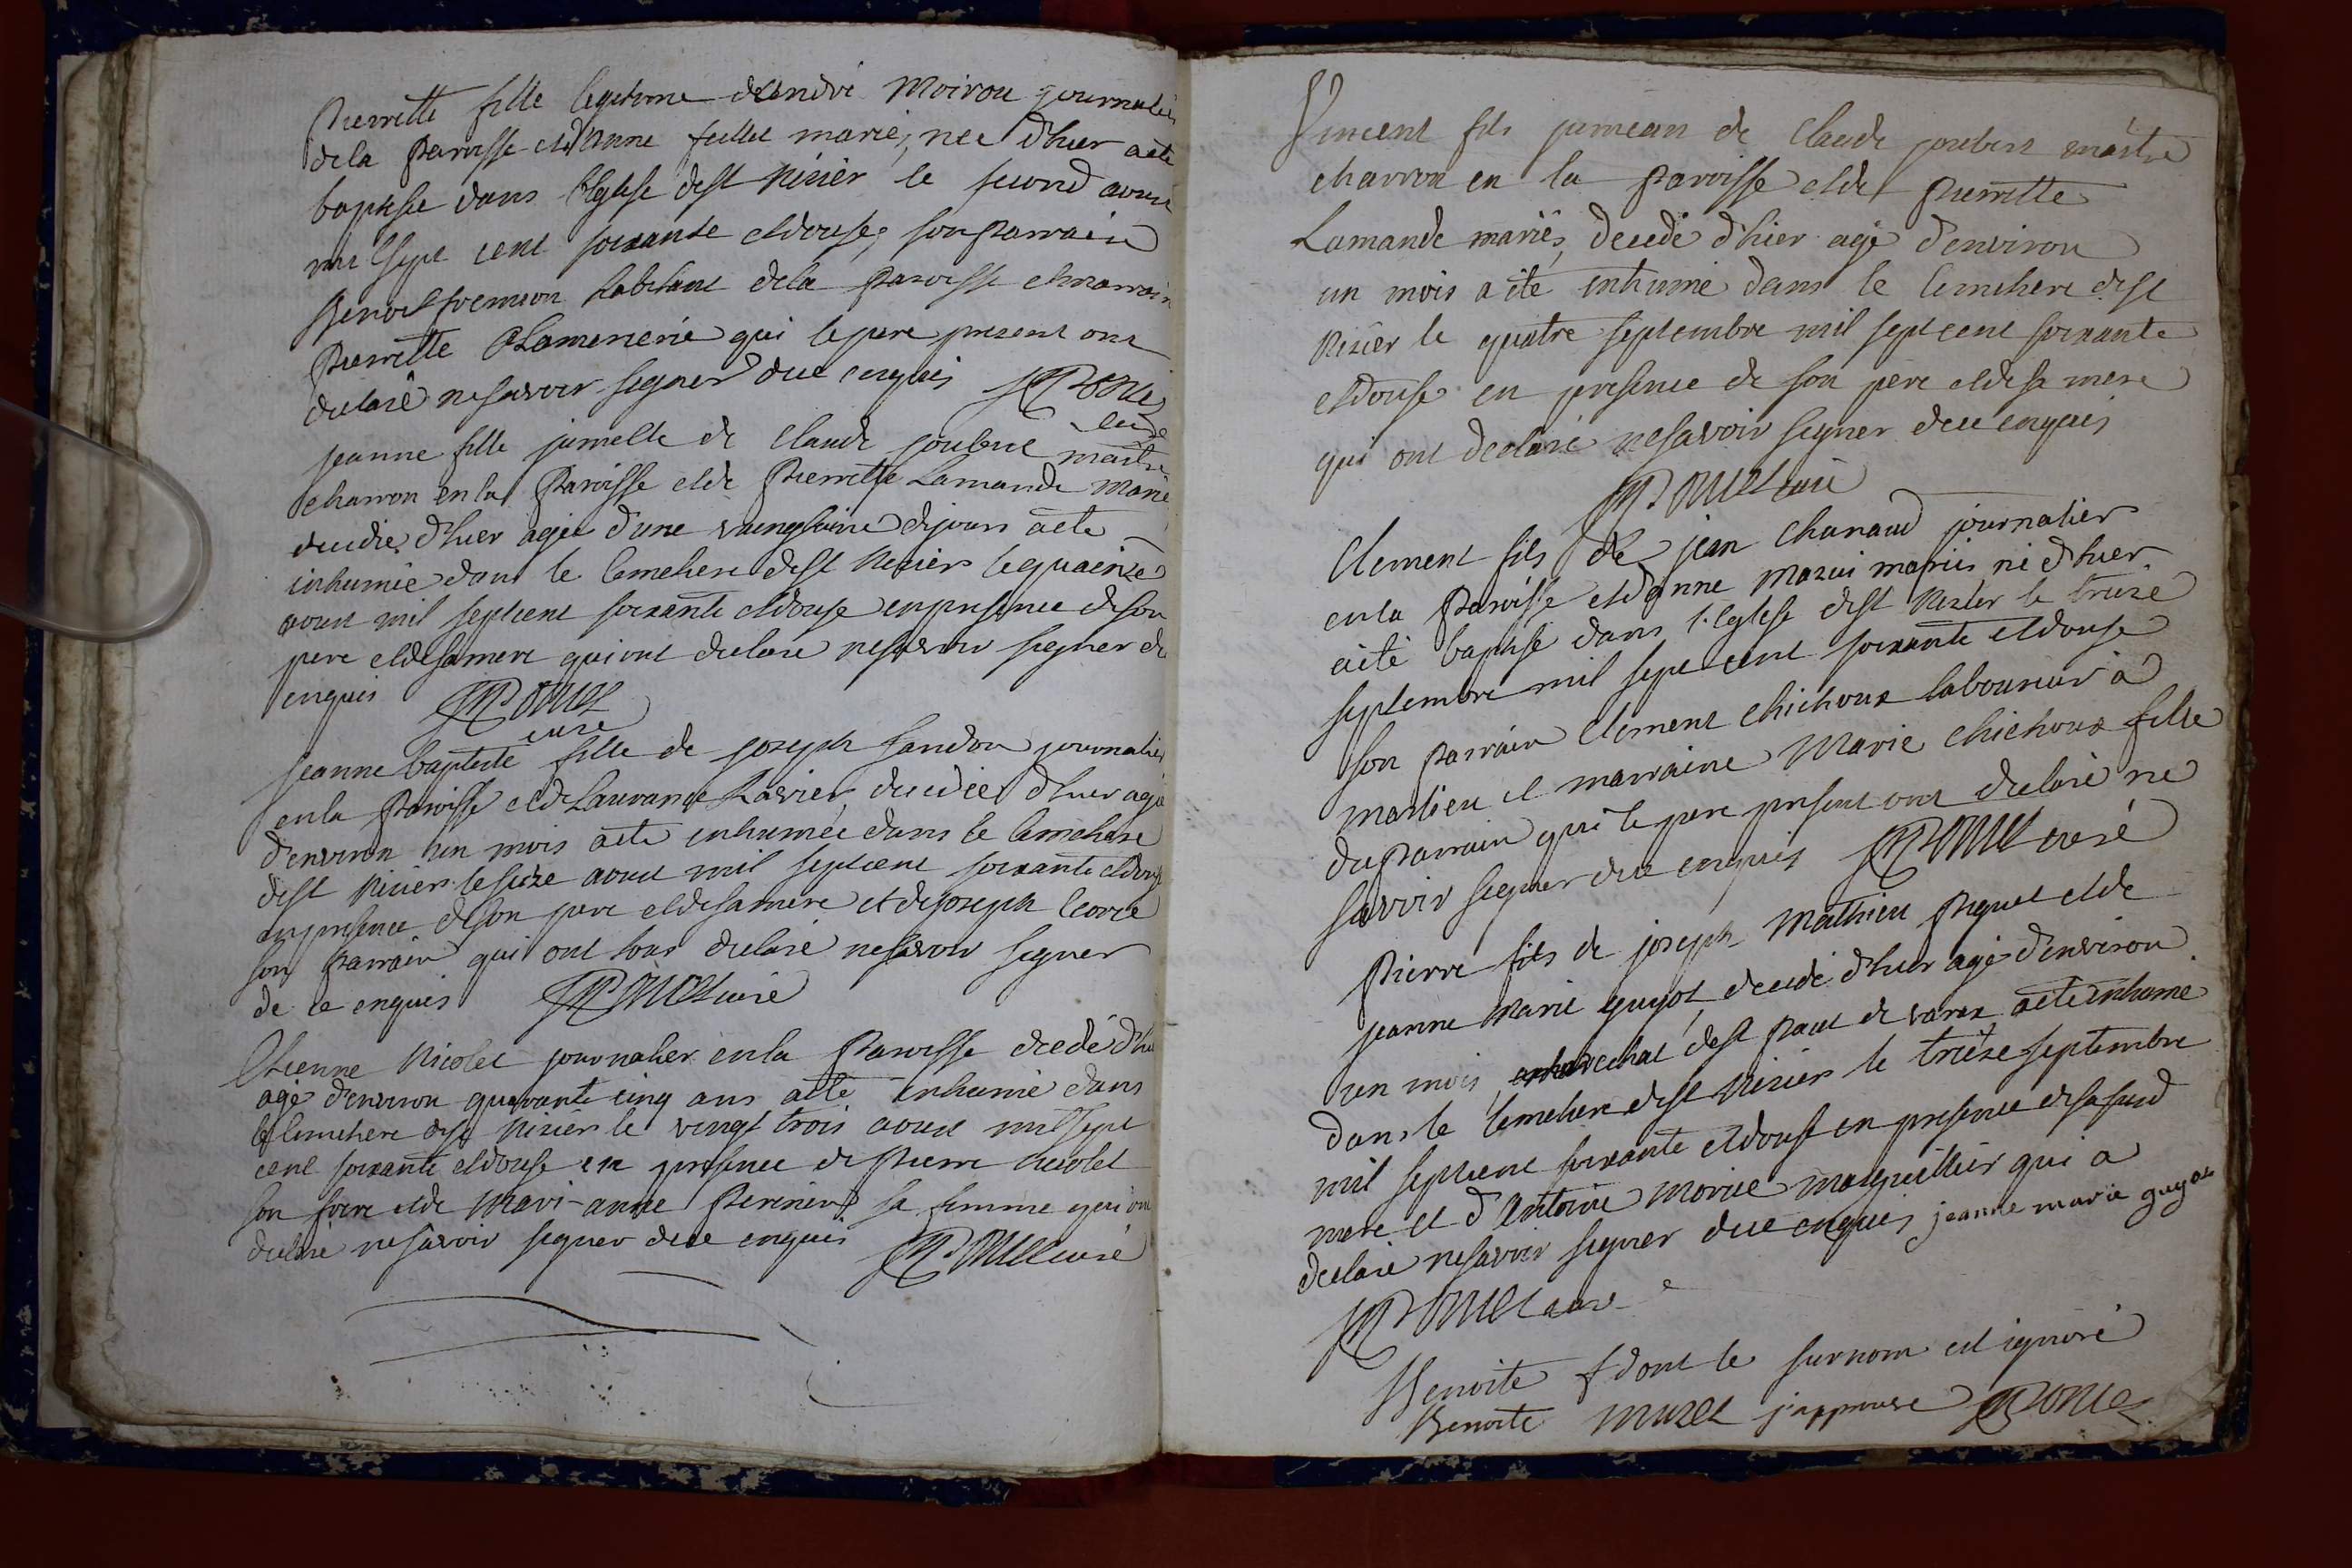 Pierrette fille legitime d'Andre Moirou journalier
de la Paroisse et d'Anne fellet marie, nee d'hier a ete
baptisee dans l'Eglise de St Nizier le second aoust
mil sept cent soixante et douse, son Parrain
Benoit fremion habitant de la Paroisse et marraine
Pierrette qui le pere present ont
declaré ne savoir signer de ce enquis
curé
Jeanne fille jumelle de Claude joubert maitre
charron en la Paroisse et de Pierrette Lamande marie
decedée d'hier agée d'une vaingtaine de jours a ete
inhumée dans le Cemetiere de St Nizier le quainze
aoust mil sept cent soixante et douse en presence de son
pere et de sa mere qui ont declaré ne savoir signer de
enquis
curé
Jeanne baptiste fille de joseph Sandon journalier
en la Paroisse et de Laurance Lavier, decedée d'hier agée
d'environ un mois a ete inhumée dans le Cemetiere
de St Nizier le seize aoust mil sept cent soixante et douse
en presence de son pere et de sa mere et de joseph
son Parrain qui ont tous declaré ne savoir signer
de ce enquis curé
Etienne Nicolet journalier en la Paroisse decedé d'hier
agé d'environ quarante cinq ans a ete inhumé dans
le Cemetiere de St Nizier le vingt trois aoust mil sept
cent soixante et douse en presence de Pierre Nicolet
son frere et de Mari-anne Perinier sa femme qui ont
declaré ne savoir signer de ce enquis curé
Vincent fils jumeau de Claude joubert maitre
charron en la Paroisse et de Pierrette
Lamande mariés, decedé d'hier agé d'environ
un mois a été inhumé dans le Cemetiere de St
Nizier le quatre septembre mil sept cent soixante
et douse en presence de son pere et de sa mere
qui ont declaré ne savoir signer de ce enquis
curé
Clement fils de jean Chanaud journalier
en la Paroisse et d'anne Mazui mariés né d'hier
a été baptisé dans l'Eglise de St Nizier le treize
septembre mil sept cent soixante et douse
son Parrain Clement Chichoux laboureur à
marlieu et marraine Marie Chichoux fille
du Parrain qui le pere present ont declaré ne
savoir signer de ce enquis curé
Pierre fils de joseph Mathieu Piquet et de
jeanne Marie guyot, decedé d'hier agé d'environ
un mois, marechal de St Paul de varax a ete inhumé
dans le Cemetiere de St Nizier le treize septembre
mil sept cent soixante et douse en presence de sa susd
mere et d'Antoine Morice marguillier qui a
declaré ne savoir signer de ce enquis jeanne marie guyot
curé
Benoite + dont le surnom est ignoré
Benoite Muzet j'approuve